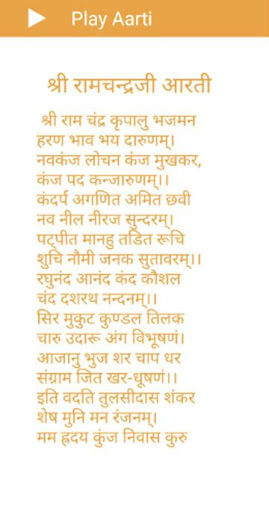 Play Aarti
श्री रामचन्द्रजी आरती
श्री राम चंद्र कृपालु भजमन
हरण भाव भय दारुणम्।
नवकंज लोचन कंज मुखकर,
कंज पद कन्जारुणम्।।
कंदर्प अगणित अमित छवी
नव नील नीरज सुन्दरम्।
पट्पीत मानहु तडित रूचि
शुचि नौमी जनक सुतावरम्।।
रघुनंद आनंद कंद कौशल
चंद दशरथ नन्दनम्।।
सिर मुकुट कुण्डल तिलक
चारु उदारू अंग विभूषणं।
आजानु भुज शर चाप धर
संग्राम जित खर-धूषणं।।
इति वदति तुलसीदास शंकर
शेष मुनि मन रंजनम्।
मम ह्रदय कुंज निवास कुरु